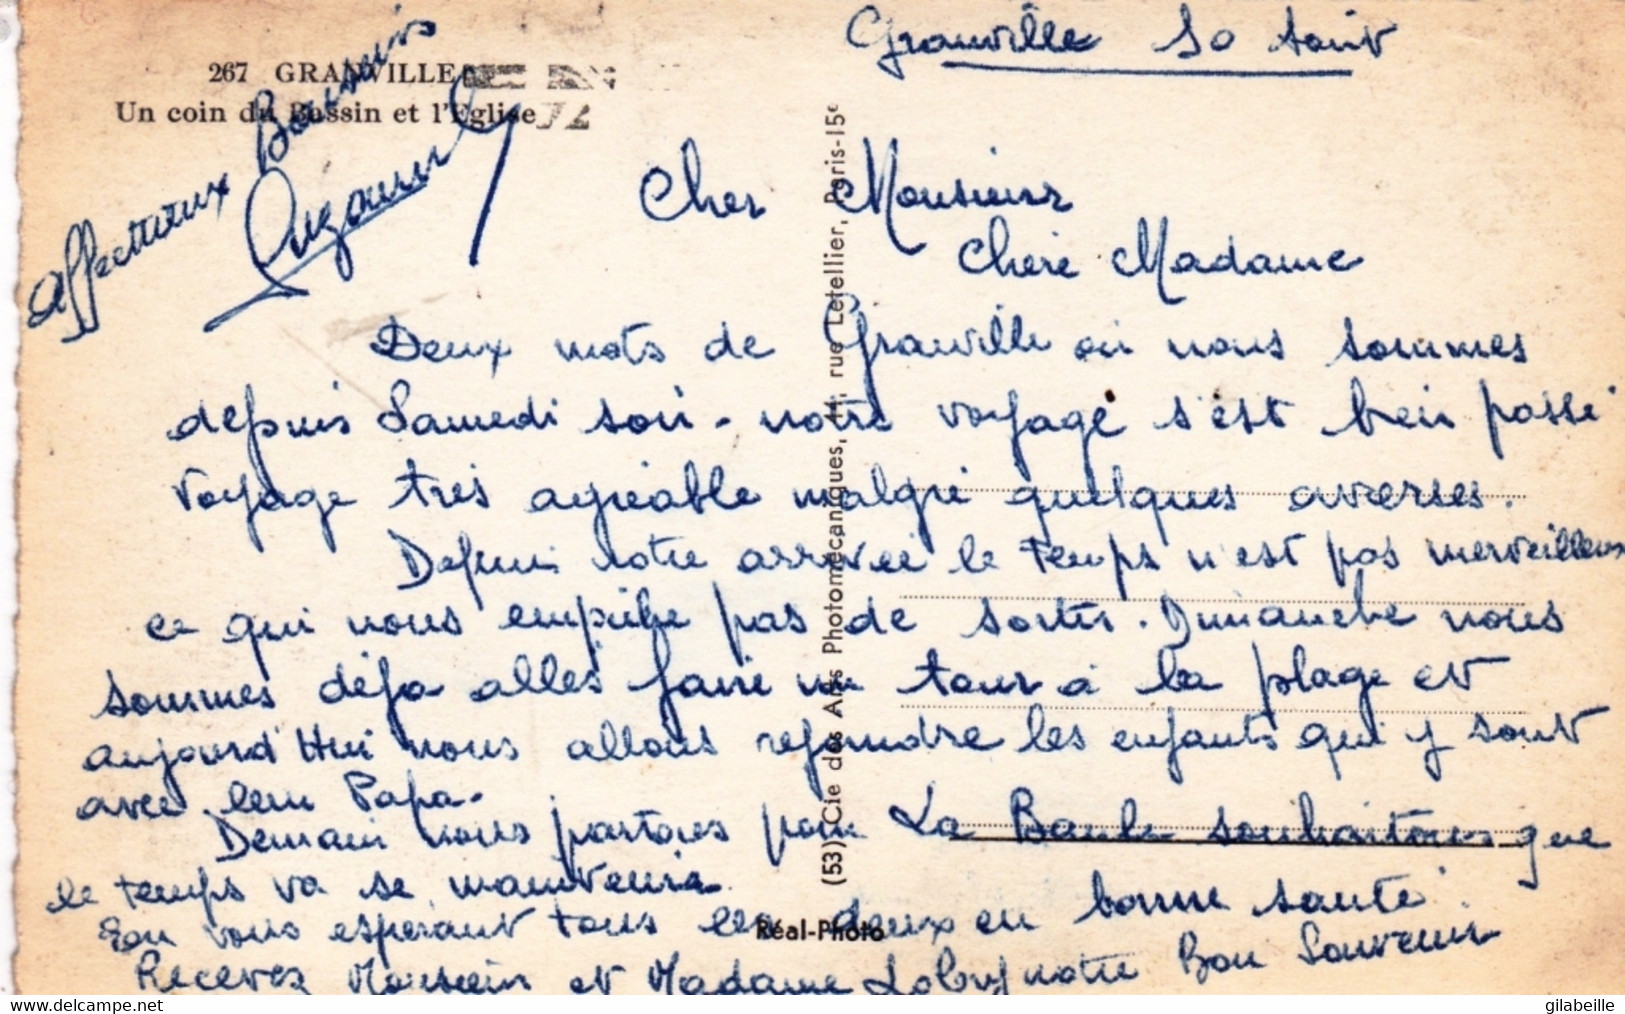 Granville 10 Août
267 GRANVILLE
Un coin du Bassin et l'Eglise
72
Affectueux Baisers
Cher Monsieur
Chère Madame
Deux mots de Granville où nous sommes
depuis Samedi soir - notre voyage s'est bien passé
voyage très agréable malgré quelques averses.
Depuis notre arrivée le temps n'est pas merveilleux
ce qui nous empêche pas de sortir. Dimanche nous
sommes déja allés faire un tour à la plage et
aujourd'Hui nous allons rejoindre les enfants qui y sont
avec leur Papa.
Demain nous partons pour La Baule souhaitons que
le temps va se maintenir
En vous espérant tous les deux en bonne santé.
Recevez Monsieur et Madame notre Bon Souvenir
(53) Cie des Arts Photomécaniques, 44, rue Letellier, Paris-15e
Réal-Photo
www.delcampe.net
gilabeille